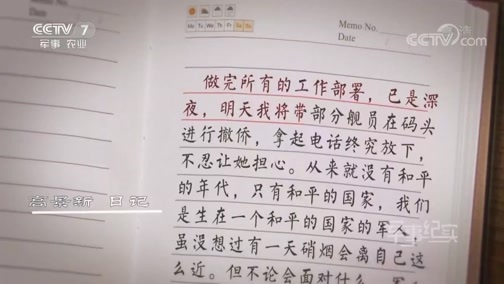 CCTV 7
军事 农业
CCTV.com
Memo No.
Date
Mo Tu We Th Fr Sa Su
做完所有的工作部署，已是深
夜，明天我将带部分舰员在码头
进行撤侨，拿起电话终究放下，
不忍让她担心。从来就没有和平
的年代，只有和平的国家，我们
是生在一个和平的国家的军人，
虽没想过有一天硝烟会离自己这
么近。但不论会面对什么，军人
日记
军事纪实